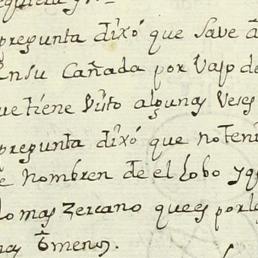 pregunta dixó que save a
Ensu Cañada por Vajo de
ue tiene Visto algunas Veses
pregunta dixó que noteni
e nombren de el Lobo yqu
lo mas zercano quees porlo
menos.